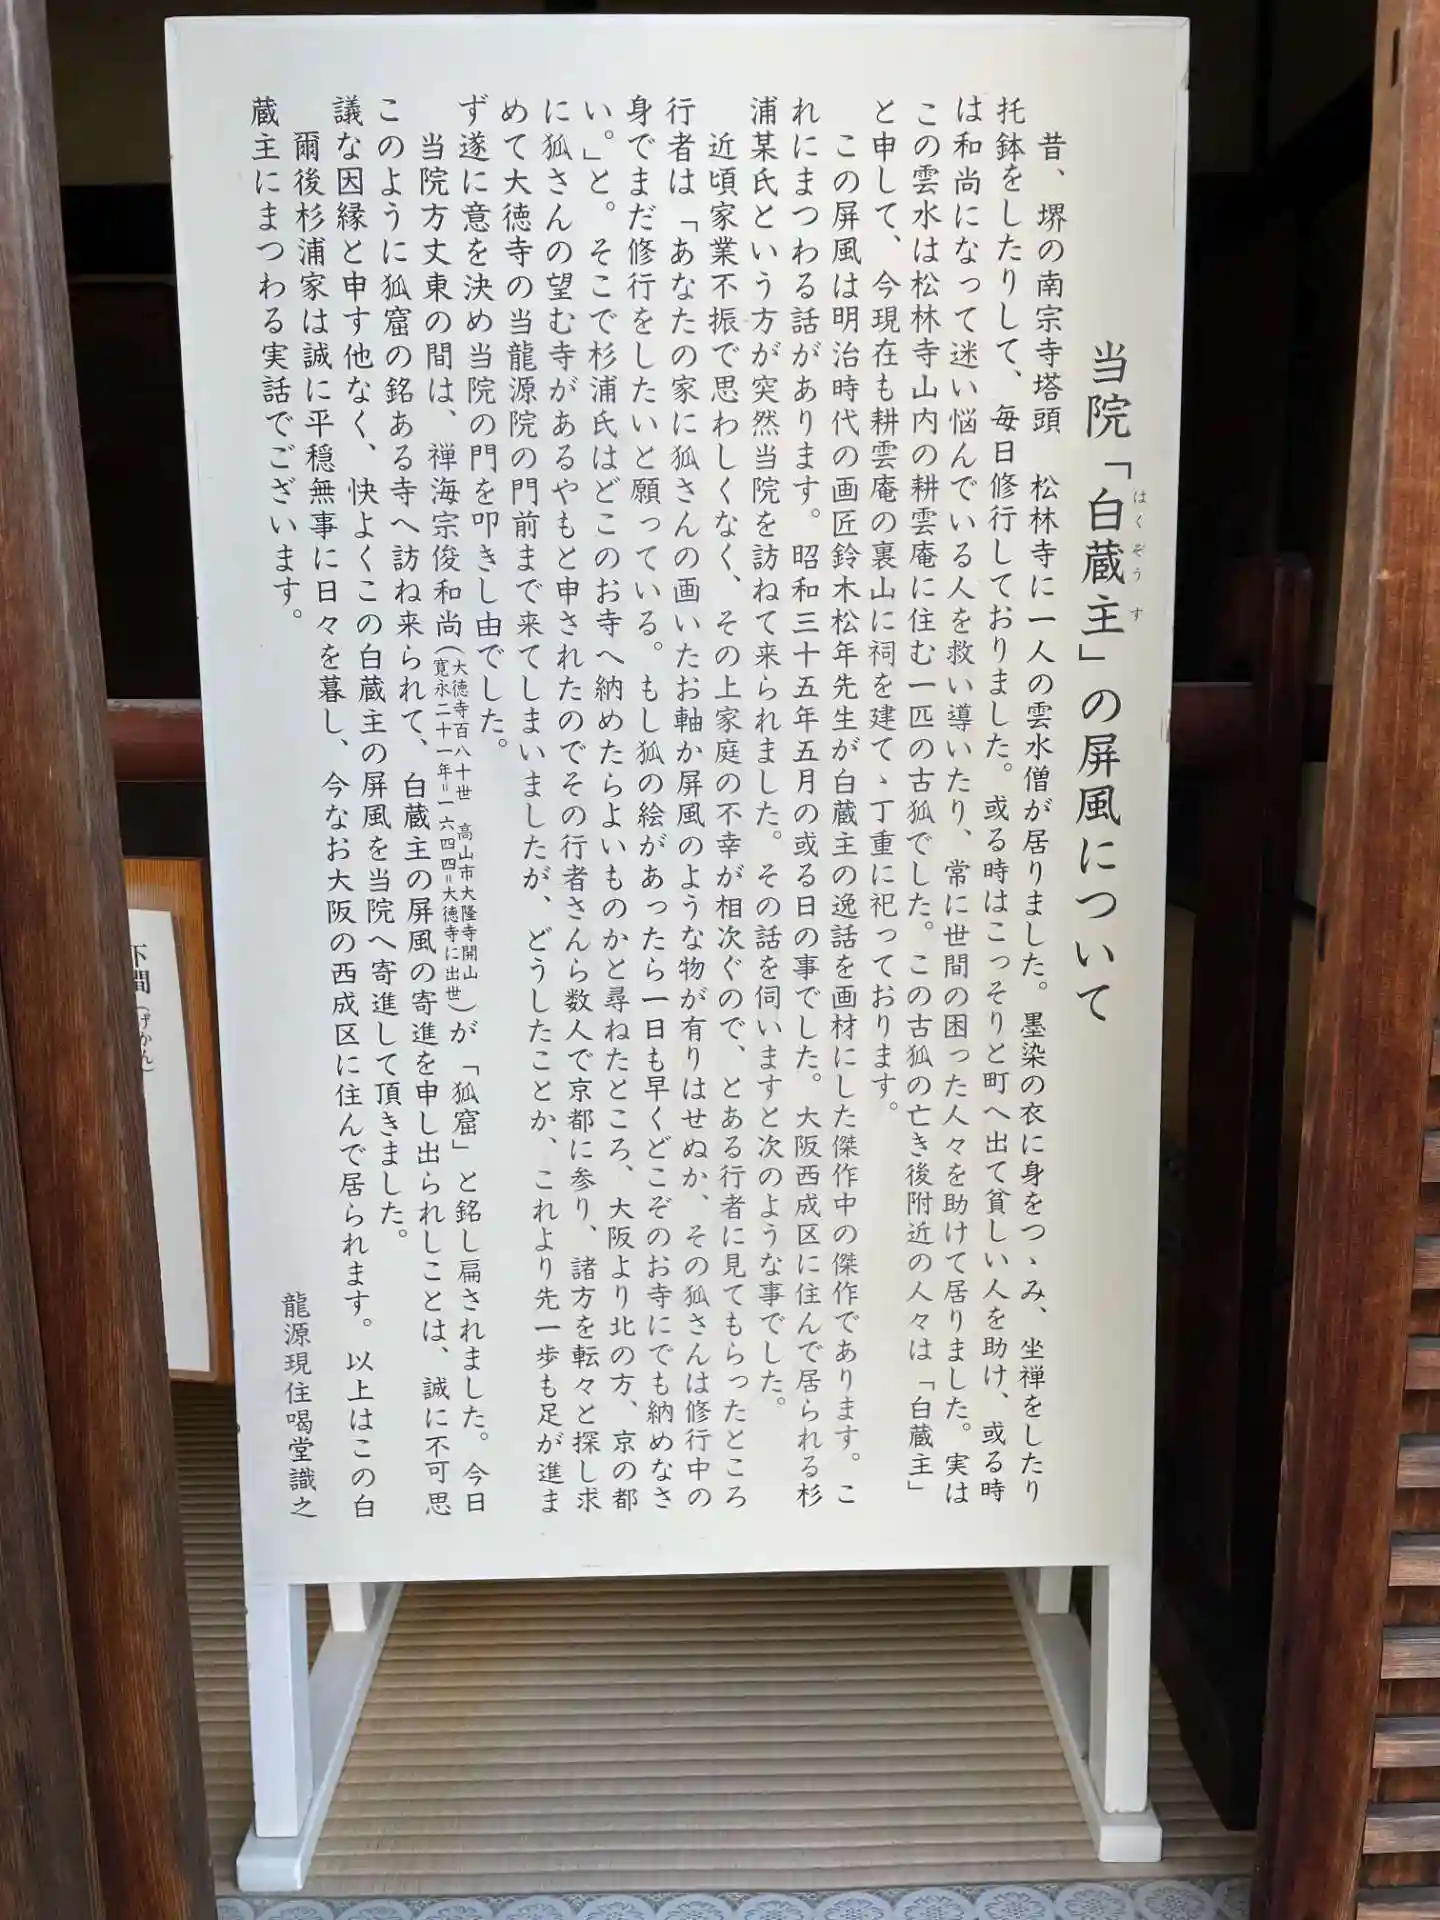 当院「白蔵主」の屏風について
はくぞうす
昔、堺の南宗寺塔頭　松林寺に一人の雲水僧が居りました。墨染の衣に身をつゝみ、坐禅をしたり
托鉢をしたりして、毎日修行しておりました。或る時はこっそりと町へ出て貧しい人を助け、或る時
は和尚になって迷い悩んでいる人を救い導いたり、常に世間の困った人々を助けて居りました。実は
この雲水は松林寺山内の耕雲庵に住む一匹の古狐でした。この古狐の亡き後附近の人々は「白蔵主」
と申して、今現在も耕雲庵の裏山に祠を建てゝ丁重に祀っております。
この屏風は明治時代の画匠鈴木松年先生が白蔵主の逸話を画材にした傑作中の傑作であります。こ
れにまつわる話があります。昭和三十五年五月の或る日の事でした。大阪西成区に住んで居られる杉
浦某氏という方が突然当院を訪ねて来られました。その話を伺いますと次のような事でした。
近頃家業不振で思わしくなく、その上家庭の不幸が相次ぐので、とある行者に見てもらったところ
行者は「あなたの家に狐さんの画いたお軸か屏風のような物が有りはせぬか、その狐さんは修行中の
身でまだ修行をしたいと願っている。もし狐の絵があったら一日も早くどこぞのお寺にでも納めなさ
い。」と。そこで杉浦氏はどこのお寺へ納めたらよいものかと尋ねたところ、大阪より北の方、京の都
に狐さんの望む寺があるやもと申されたのでその行者さんら数人で京都に参り、諸方を転々と探し求
めて大徳寺の当龍源院の門前まで来てしまいましたが、どうしたことか、これより先一歩も足が進ま
ず遂に意を決め当院の門を叩きし由でした。
当院方丈東の間は、禅海宗俊和尚(大徳寺百八十世　高山市大隆寺開山
寛永二十一年=一六四四=大徳寺に出世)が「狐窟」と銘し扁されました。今日
このように狐窟の銘ある寺へ訪ね来られて、白蔵主の屏風の寄進を申し出られしことは、誠に不可思
議な因縁と申す他なく、快よくこの白蔵主の屏風を当院へ寄進して頂きました。
爾後杉浦家は誠に平穏無事に日々を暮し、今なお大阪の西成区に住んで居られます。以上はこの白
蔵主にまつわる実話でございます。
龍源現住喝堂識之
下間(げかん)